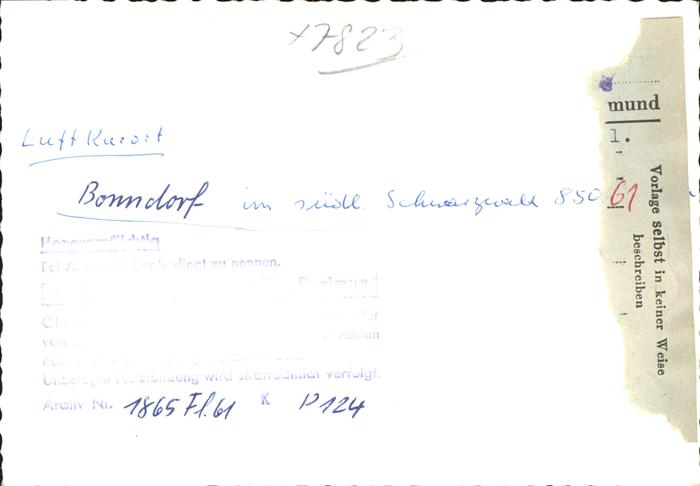 x7823
Luftkurort
Bonndorf im südl. Schwarzwald 850
61
Honorarpflichtig
Bei Abdruck unbedingt zu nennen.
Dortmund
Unbefugte Nachbildung wird strafrechtlich verfolgt.
Archiv Nr. 1865 Fl. 61 K P 124
mund
1.
Vorlage selbst in keiner Weise
beschreiben